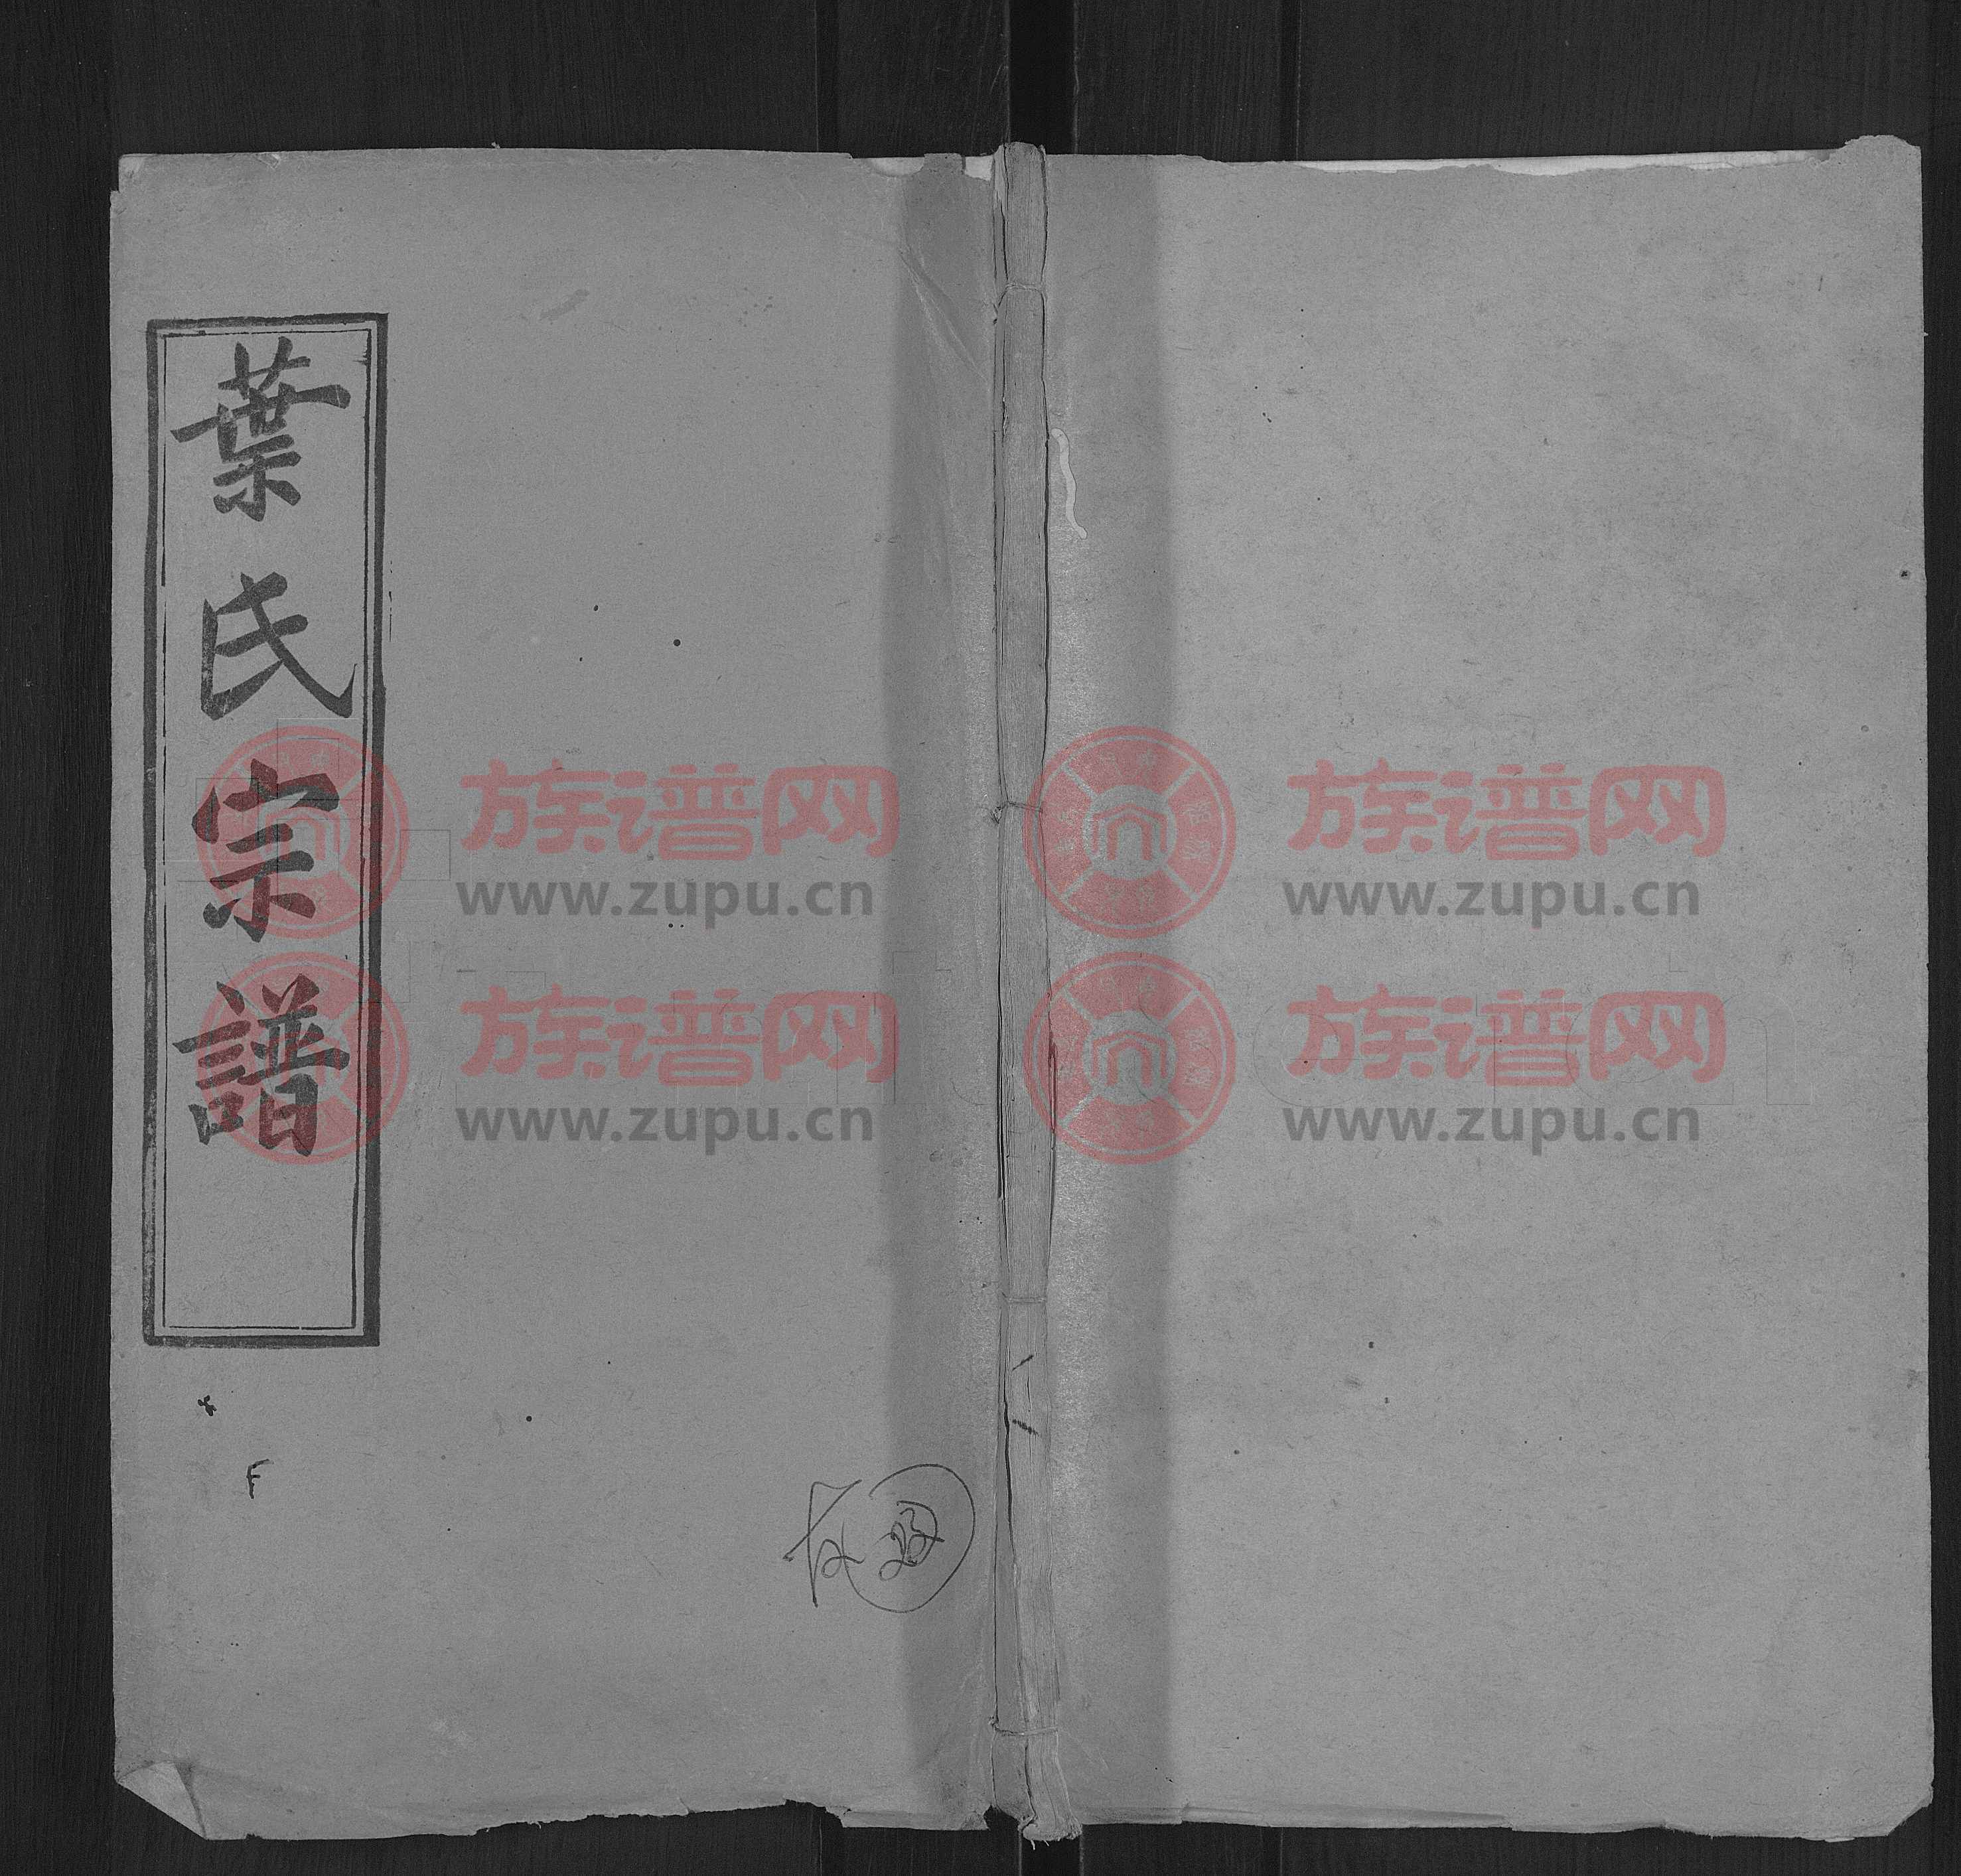 葉氏宗譜
族谱网
www.zupu.cn
族谱网
www.zupu.cn
族谱网
www.zupu.cn
族谱网
www.zupu.cn
F